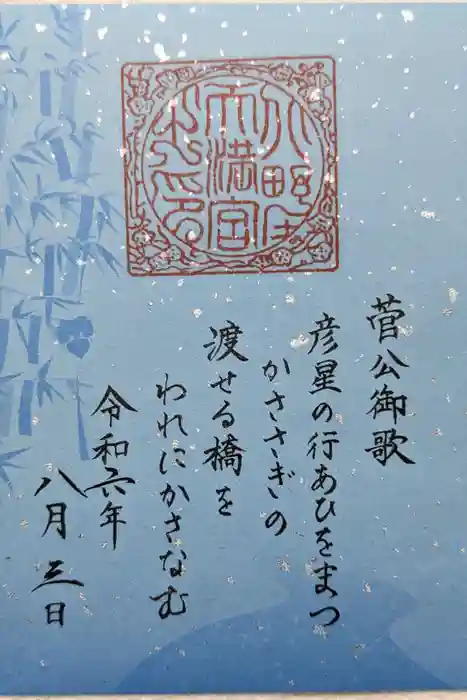 菅公御歌
彦星の行あひをまつ
かささぎの
渡せる橋を
われにかさなむ
令和六年
八月三日